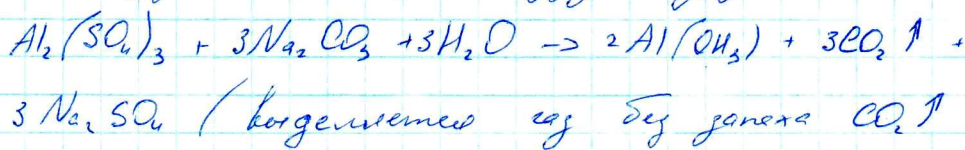 Al₂(SO₄)₃ + 3Na₂CO₃ + 3H₂O -> 2Al(OH₃) + 3CO₂↑ +
3Na₂SO₄ (выделяется газ без запаха CO₂↑